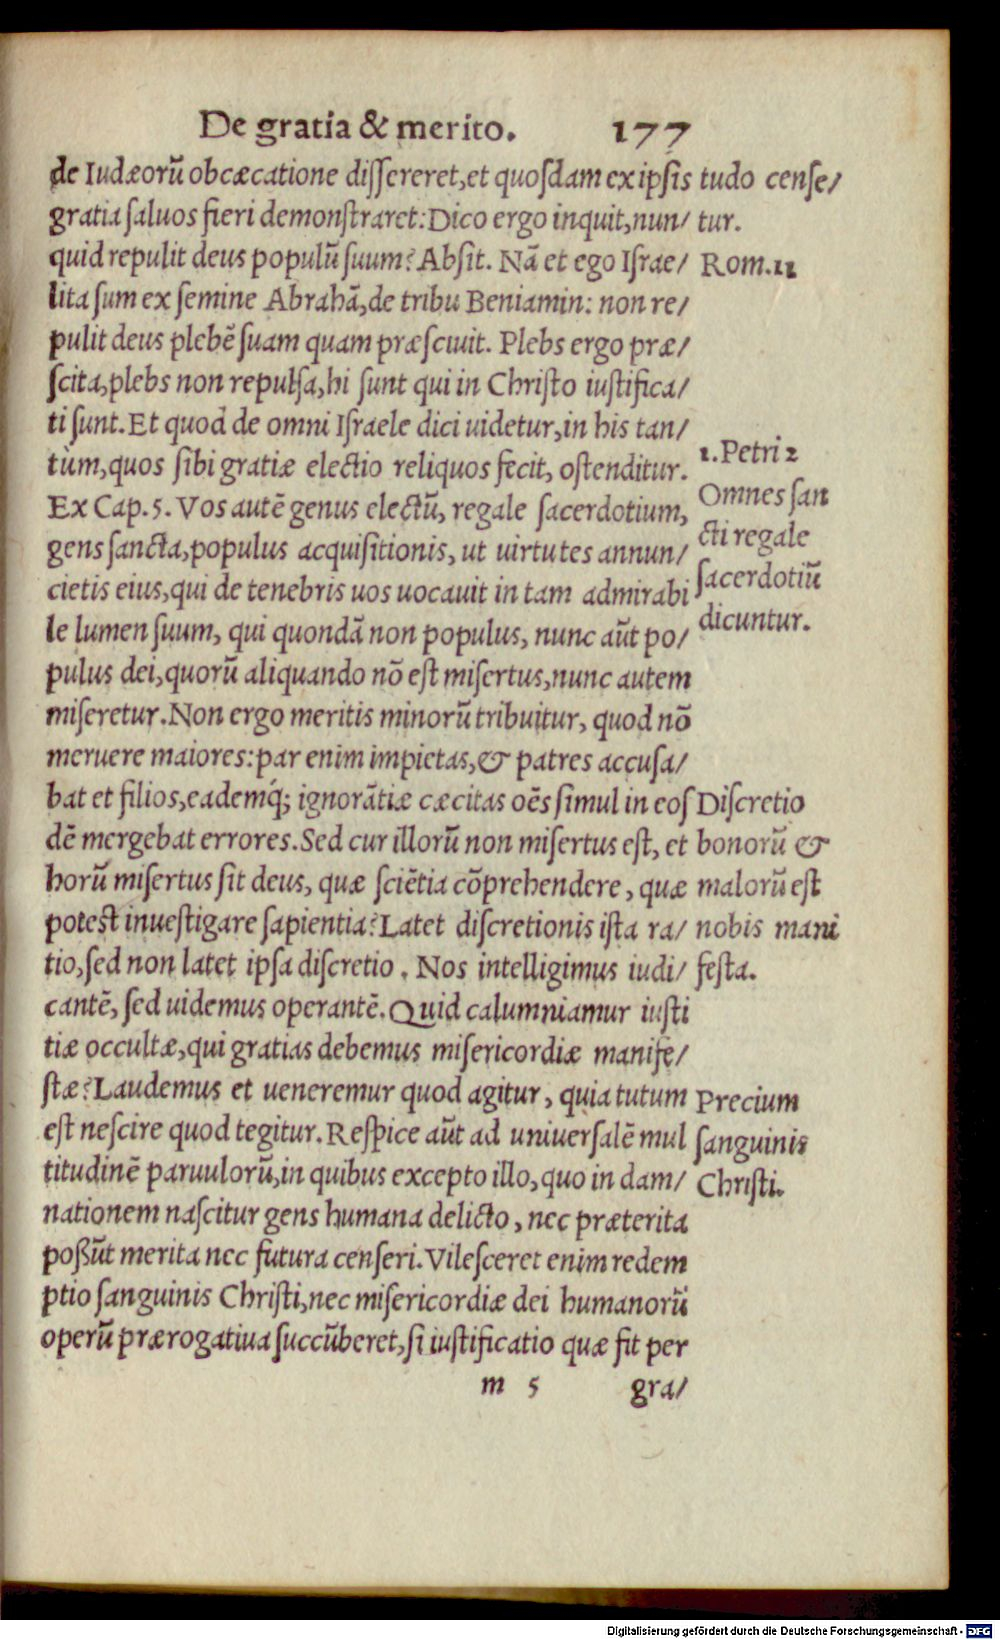 De gratia & merito. 177
de Iudæorũ obcæcatione diſſereret,et quoſdam ex ipſis
gratia ſaluos fieri demonſtraret: Dico ergo inquit,nun/
quid repulit deus populũ ſuum? Abſit. Nã et ego Iſrae/
lita ſum ex ſemine Abrahã,de tribu Beniamin: non re/
pulit deus plebẽ ſuam quam præſciuit. Plebs ergo præ/
ſcita,plebs non repulſa,hi ſunt qui in Chriſto iuſtifica/
ti ſunt. Et quod de omni Iſraele dici uidetur,in his tan/
tùm,quos ſibi gratiæ electio reliquos fecit, oſtenditur.
Ex Cap.5. Vos autẽ genus electũ, regale ſacerdotium,
gens ſancta,populus acquiſitionis, ut uirtutes annun/
cietis eius,qui de tenebris uos uocauit in tam admirabi
le lumen ſuum, qui quondã non populus, nunc aũt po/
pulus dei,quorũ aliquando nõ eſt miſertus,nunc autem
miſeretur. Non ergo meritis minorũ tribuitur, quod nõ
meruere maiores: par enim impietas,& patres accuſa/
bat et filios,eademq́; ignorãtiæ cæcitas oẽs ſimul in eoſ
dẽ mergebat errores. Sed cur illorũ non miſertus eſt, et
horũ miſertus ſit deus, quæ ſciẽtia cõprehendere, quæ
poteſt inueſtigare ſapientia? Latet diſcretionis iſta ra/
tio,ſed non latet ipſa diſcretio. Nos intelligimus iudi/
cantẽ, ſed uidemus operantẽ. Quid calumniamur iuſti
tiæ occultæ,qui gratias debemus miſericordiæ manife/
ſtæ? Laudemus et ueneremur quod agitur, quia tutum
eſt neſcire quod tegitur. Reſpice aũt ad uniuerſalẽ mul
titudinẽ paruulorũ,in quibus excepto illo,quo in dam/
nationem naſcitur gens humana delicto, nec præterita
poßũt merita nec futura cenſeri. Vileſceret enim redem
ptio ſanguinis Chriſti,nec miſericordiæ dei humanorũ
operũ prærogatiua ſuccũberet,ſi iuſtificatio quæ fit per
m 5 gra/
tudo cenſe/
tur.
Rom.11
1.Petri 2
Omnes ſan
cti regale
ſacerdotiũ
dicuntur.
Diſcretio
bonorũ &
malorũ eſt
nobis mani
feſta.
Precium
ſanguinis
Chriſti.
Digitalisierung gefördert durch die Deutsche Forschungsgemeinschaft - DFG